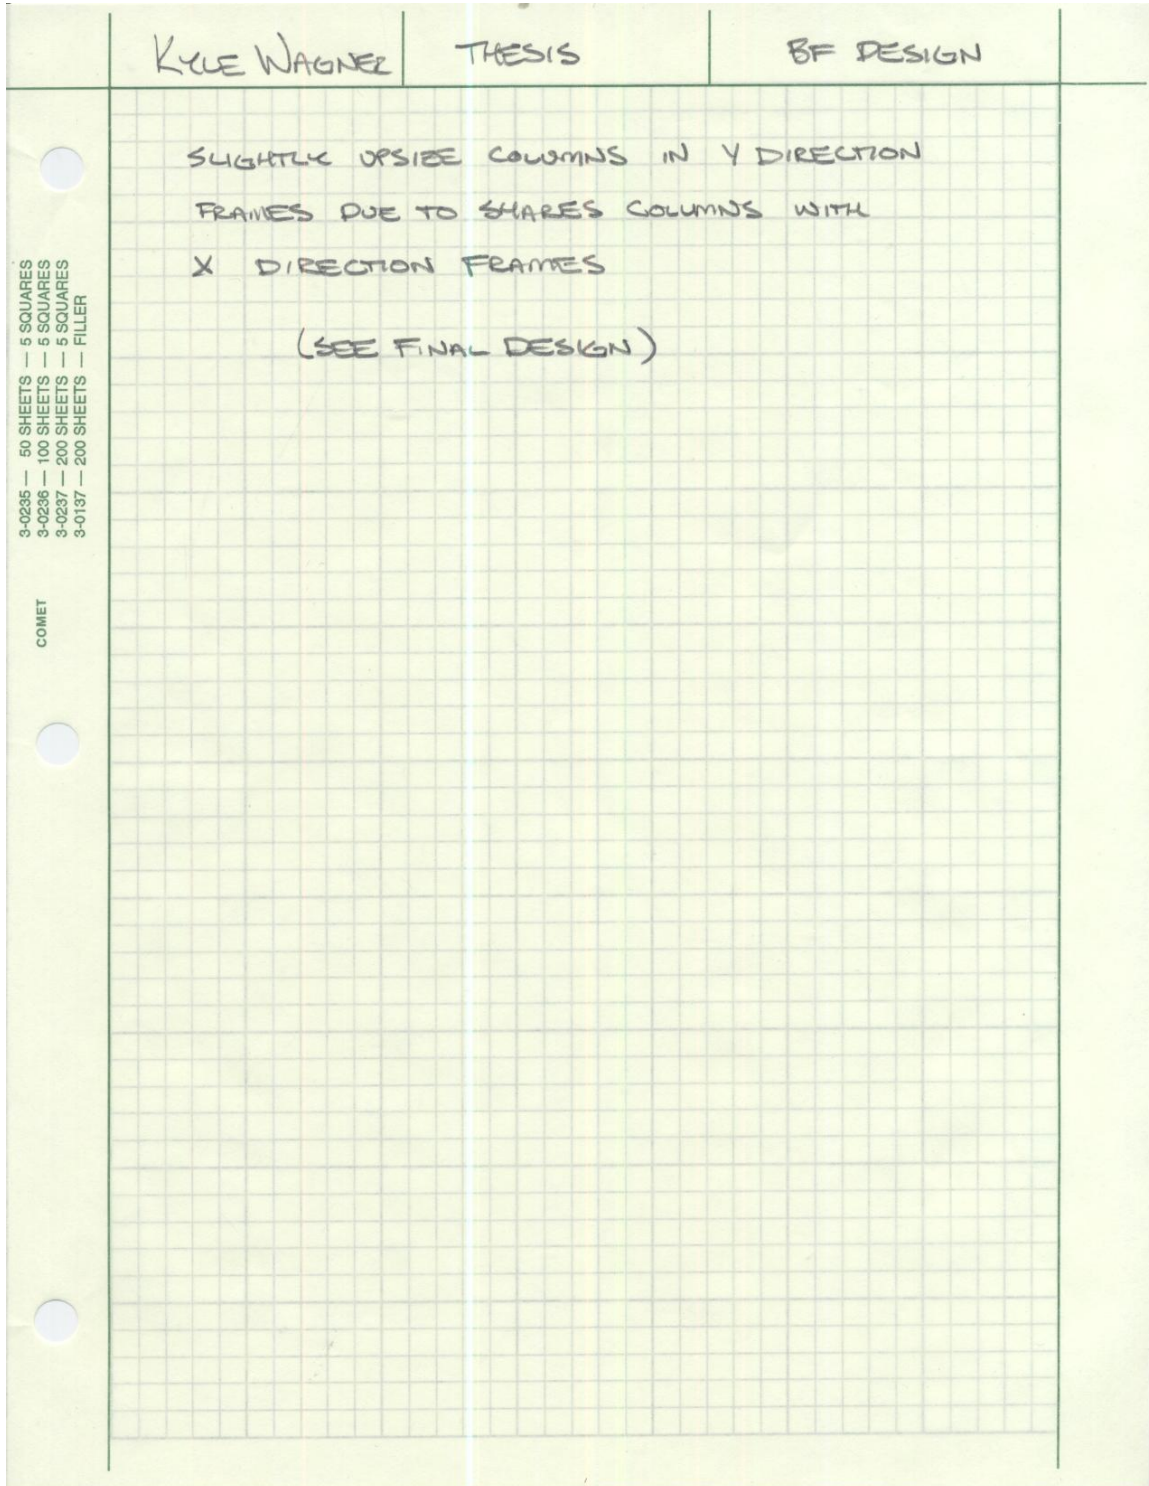 KYLE WAGNER THESIS BF DESIGN
SLIGHTLY UPSIZE COLUMNS IN Y DIRECTION
FRAMES DUE TO SHARES COLUMNS WITH
X DIRECTION FRAMES
(SEE FINAL DESIGN)
3-0235 — 50 SHEETS — 5 SQUARES
3-0236 — 100 SHEETS — 5 SQUARES
3-0237 — 200 SHEETS — 5 SQUARES
3-0137 — 200 SHEETS — FILLER
COMET